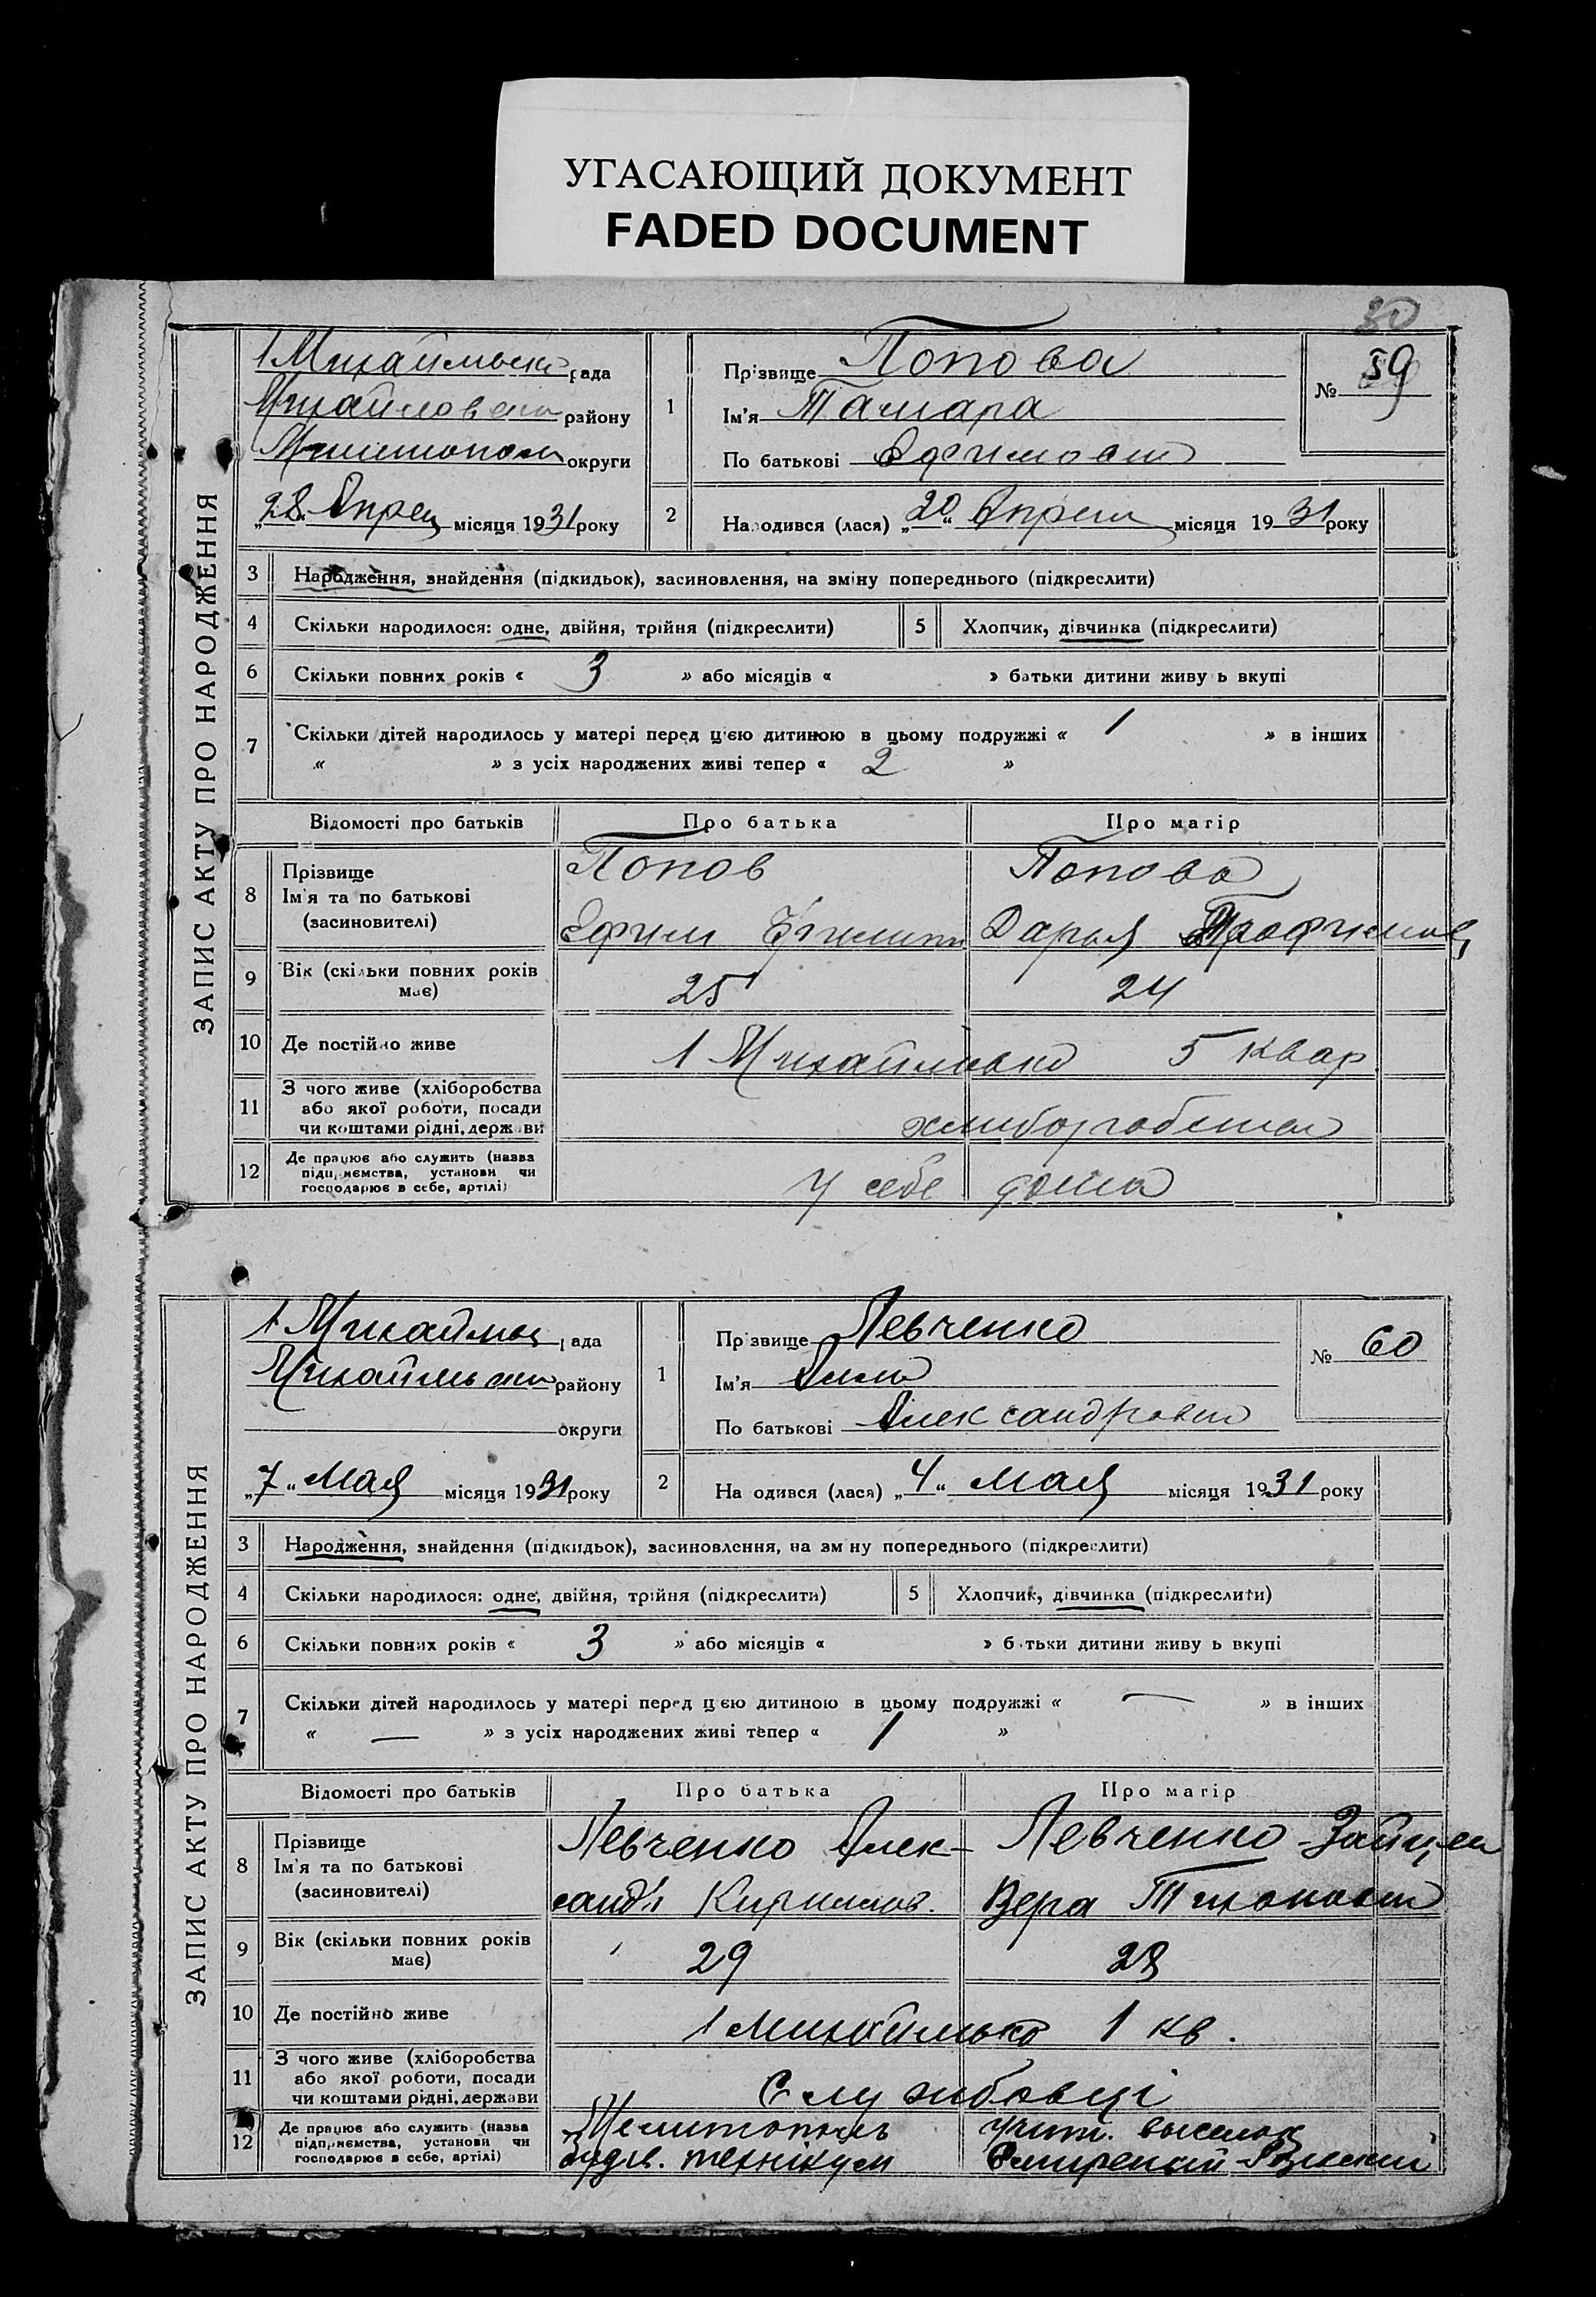 УГАСАЮЩИЙ ДОКУМЕНТ
FADED DOCUMENT
30
ЗАПИС АКТУ ПРО НАРОДЖЕННЯ
1 Михайльськ рада
району
округи
„28“ Апрел місяця 1931 року
1
Прізвище Попова
Ім'я Тамара
По батькові Ефимовн
№ 59
2
Народився (лася) „20“ Апрел місяця 1931 року
3 Народження, знайдення (підкидьок), засиновлення, на зміну попереднього (підкреслити)
4 Скільки народилося: одне, двійня, трійня (підкреслити)
5 Хлопчик, дівчинка (підкреслити)
6 Скільки повних років « 3 » або місяців « » батьки дитини живуть вкупі
7 Скільки дітей народилось у матері перед цією дитиною в цьому подружжі « 1 » в інших
« » з усіх народжених живі тепер « 2 »
Відомості про батьків Про батька Про матір
8 Прізвище
Ім'я та по батькові
(засиновителі)
Попов
Ефим
Попова
Дарья Трофимов
9 Вік (скільки повних років має)
25 24
10 Де постійно живе
1 Михайлівка 5 квар
11 З чого живе (хліборобства
або якої роботи, посади
чи коштами рідні, держави
12 Де працює або служить (назва
підприємства, установи чи
господарює в себе, артілі)
у себе дома
ЗАПИС АКТУ ПРО НАРОДЖЕННЯ
1 Михайльс рада
району
округи
„7“ Мая місяця 1931 року
1
Прізвище Левченко
Ім'я
По батькові Александровн
№ 60
2
Народився (лася) „4“ мая місяця 1931 року
3 Народження, знайдення (підкидьок), засиновлення, на зміну попереднього (підкреслити)
4 Скільки народилося: одне, двійня, трійня (підкреслити)
5 Хлопчик, дівчинка (підкреслити)
6 Скільки повних років « 3 » або місяців « » батьки дитини живуть вкупі
7 Скільки дітей народилось у матері перед цією дитиною в цьому подружжі « — » в інших
« — » з усіх народжених живі тепер « 1 »
Відомості про батьків Про батька Про матір
8 Прізвище
Ім'я та по батькові
(засиновителі)
Левченко Алек-
санд'р Кирилов.
Левченко-Зайцев
Вера Тихоновн
9 Вік (скільки повних років має)
29 28
10 Де постійно живе
1 Михайлівка 1 кв.
11 З чого живе (хліборобства
або якої роботи, посади
чи коштами рідні, держави
Службовці
12 Де працює або служить (назва
підприємства, установи чи
господарює в себе, артілі)
Мелитопольс
будів. технікум
Учит.